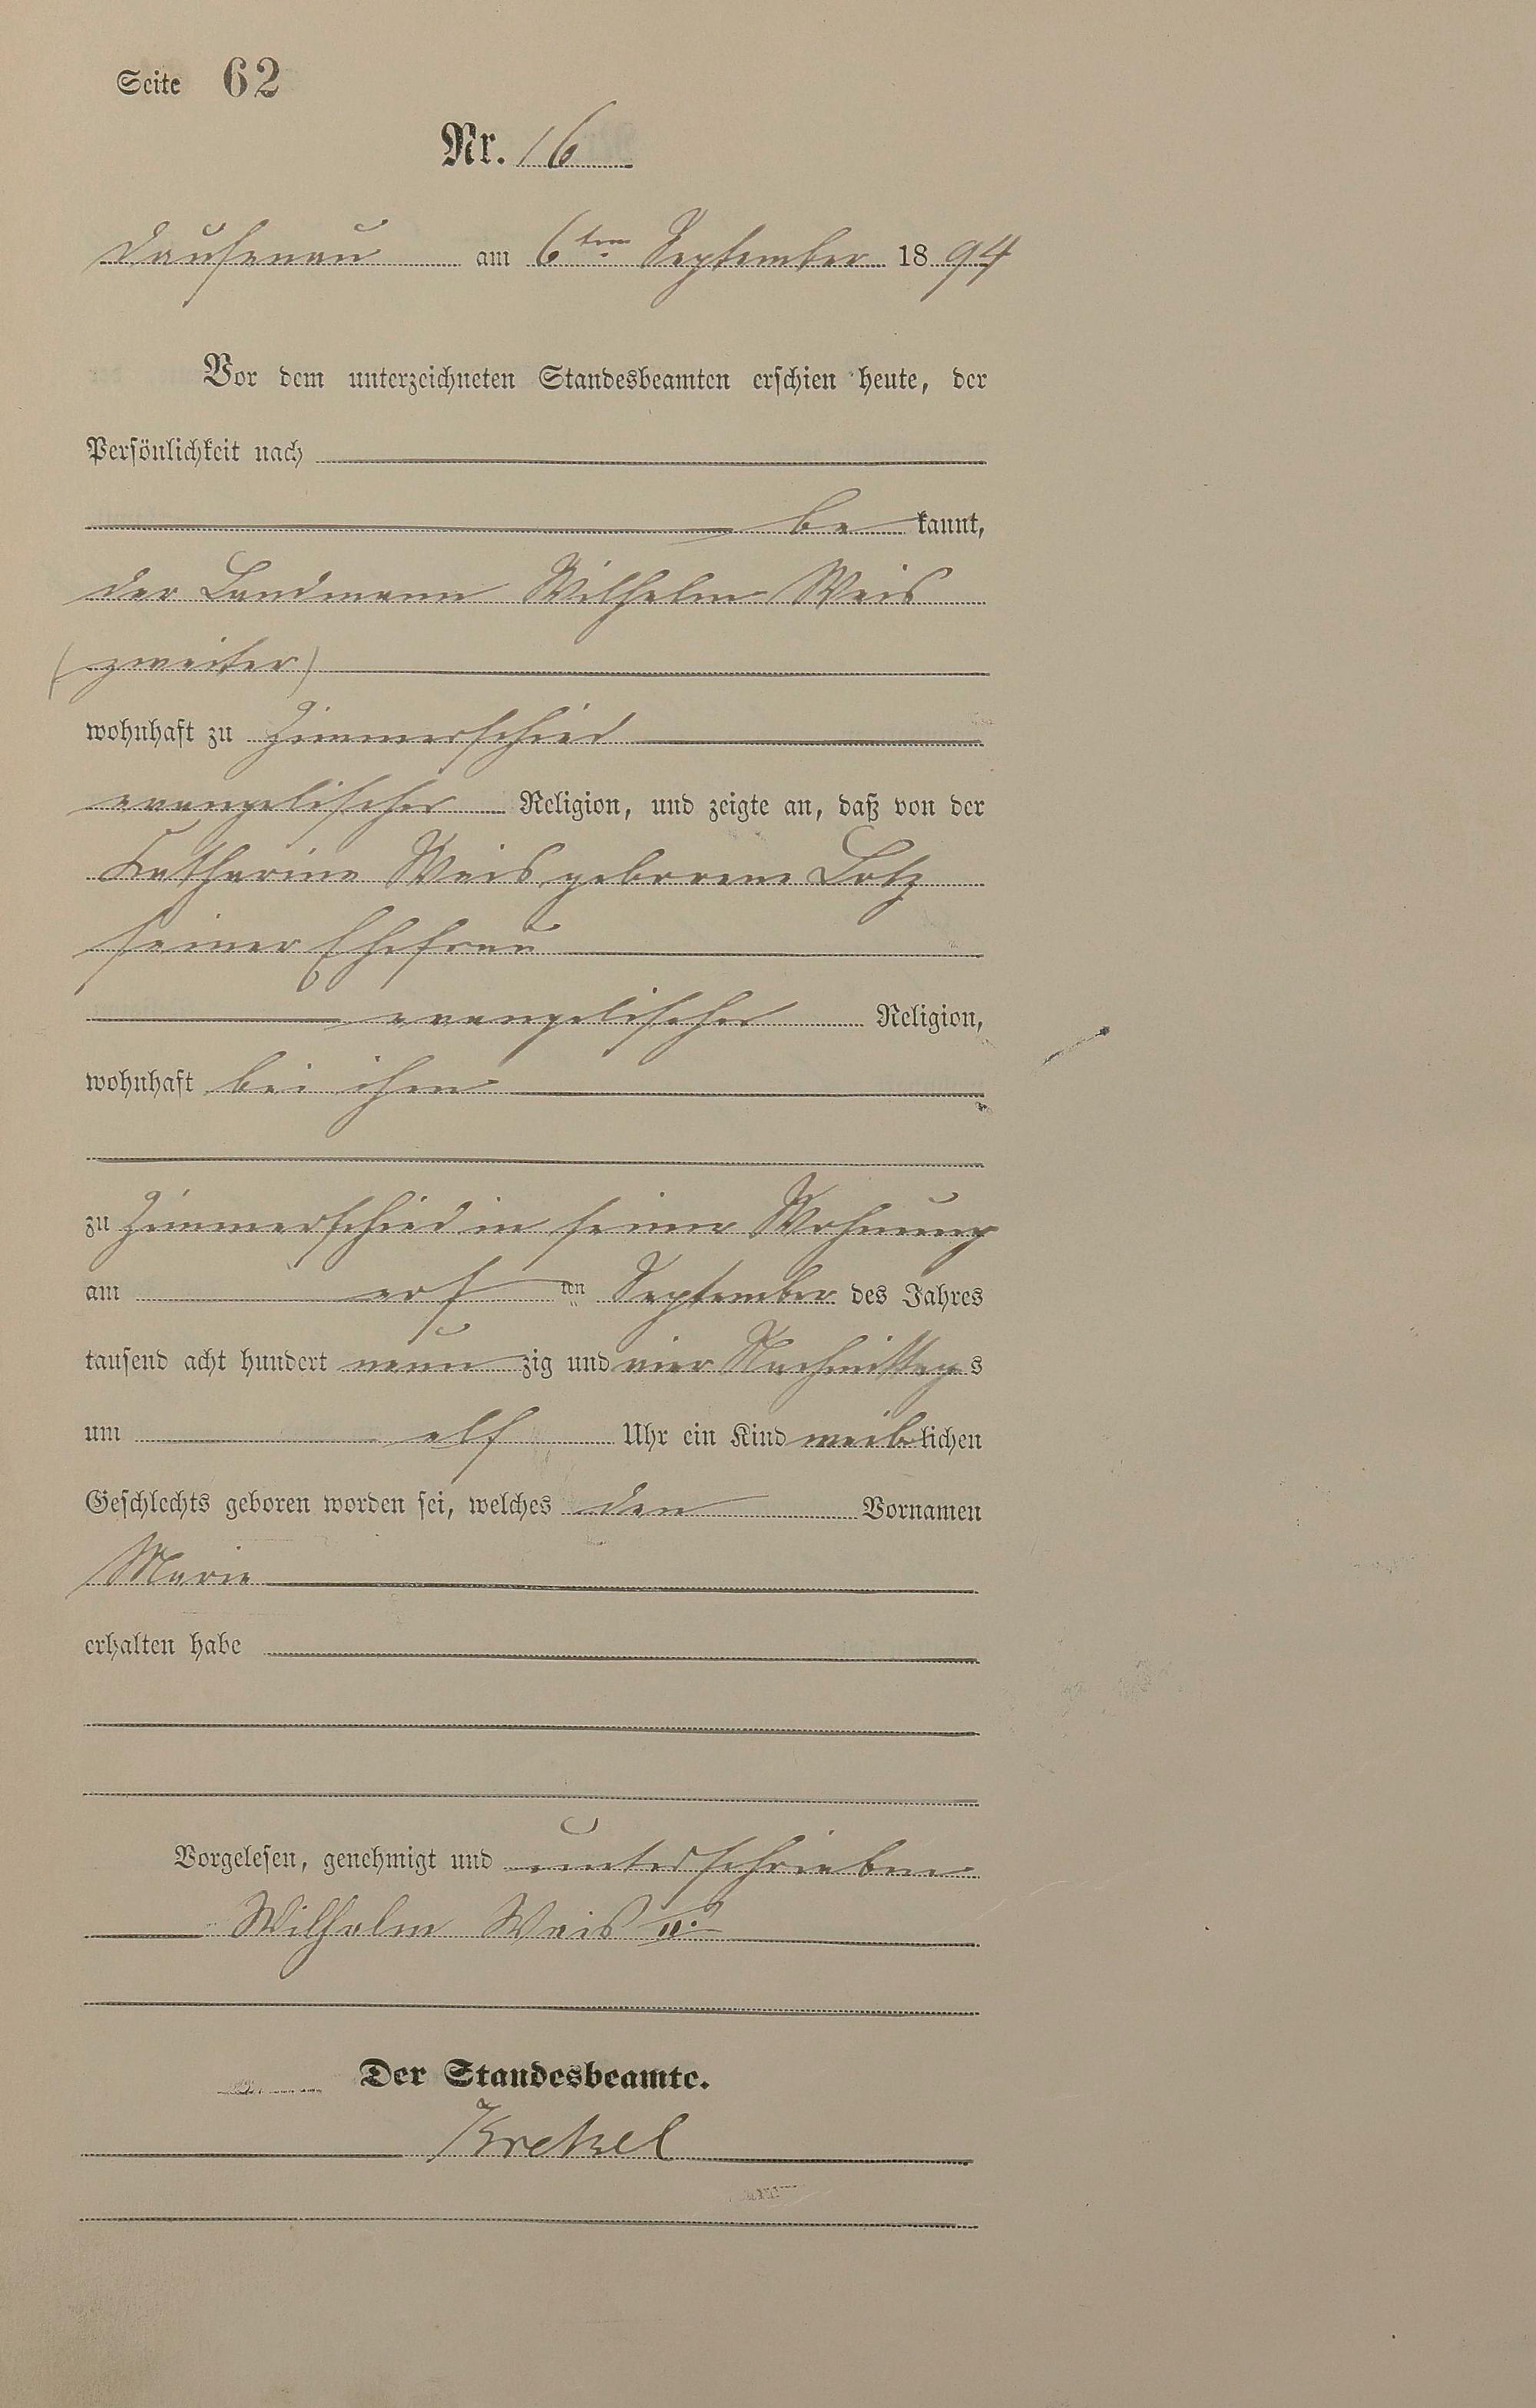 Seite 62
Nr. 16
Dausenau am 6ten September 1894
Vor dem unterzeichneten Standesbeamten erschien heute, der
Persönlichkeit nach
be kannt,
der Landmann Wilhelm Weis
(zweiter)
wohnhaft zu Zimmerschied
evangelischer Religion, und zeigte an, daß von der
Katharine Weis, geborene Lotz
seiner Ehefrau
evangelischer Religion,
wohnhaft bei ihm
zu Zimmerschied in seiner Wohnung
am ersten September des Jahres
tausend acht hundert neunzig und vier Nachmittags
um elf Uhr ein Kind weiblichen
Geschlechts geboren worden sei, welches den Vornamen
Marie
erhalten habe
Vorgelesen, genehmigt und unterschrieben
Wilhelm Weis II.
Der Standesbeamte.
Krekel